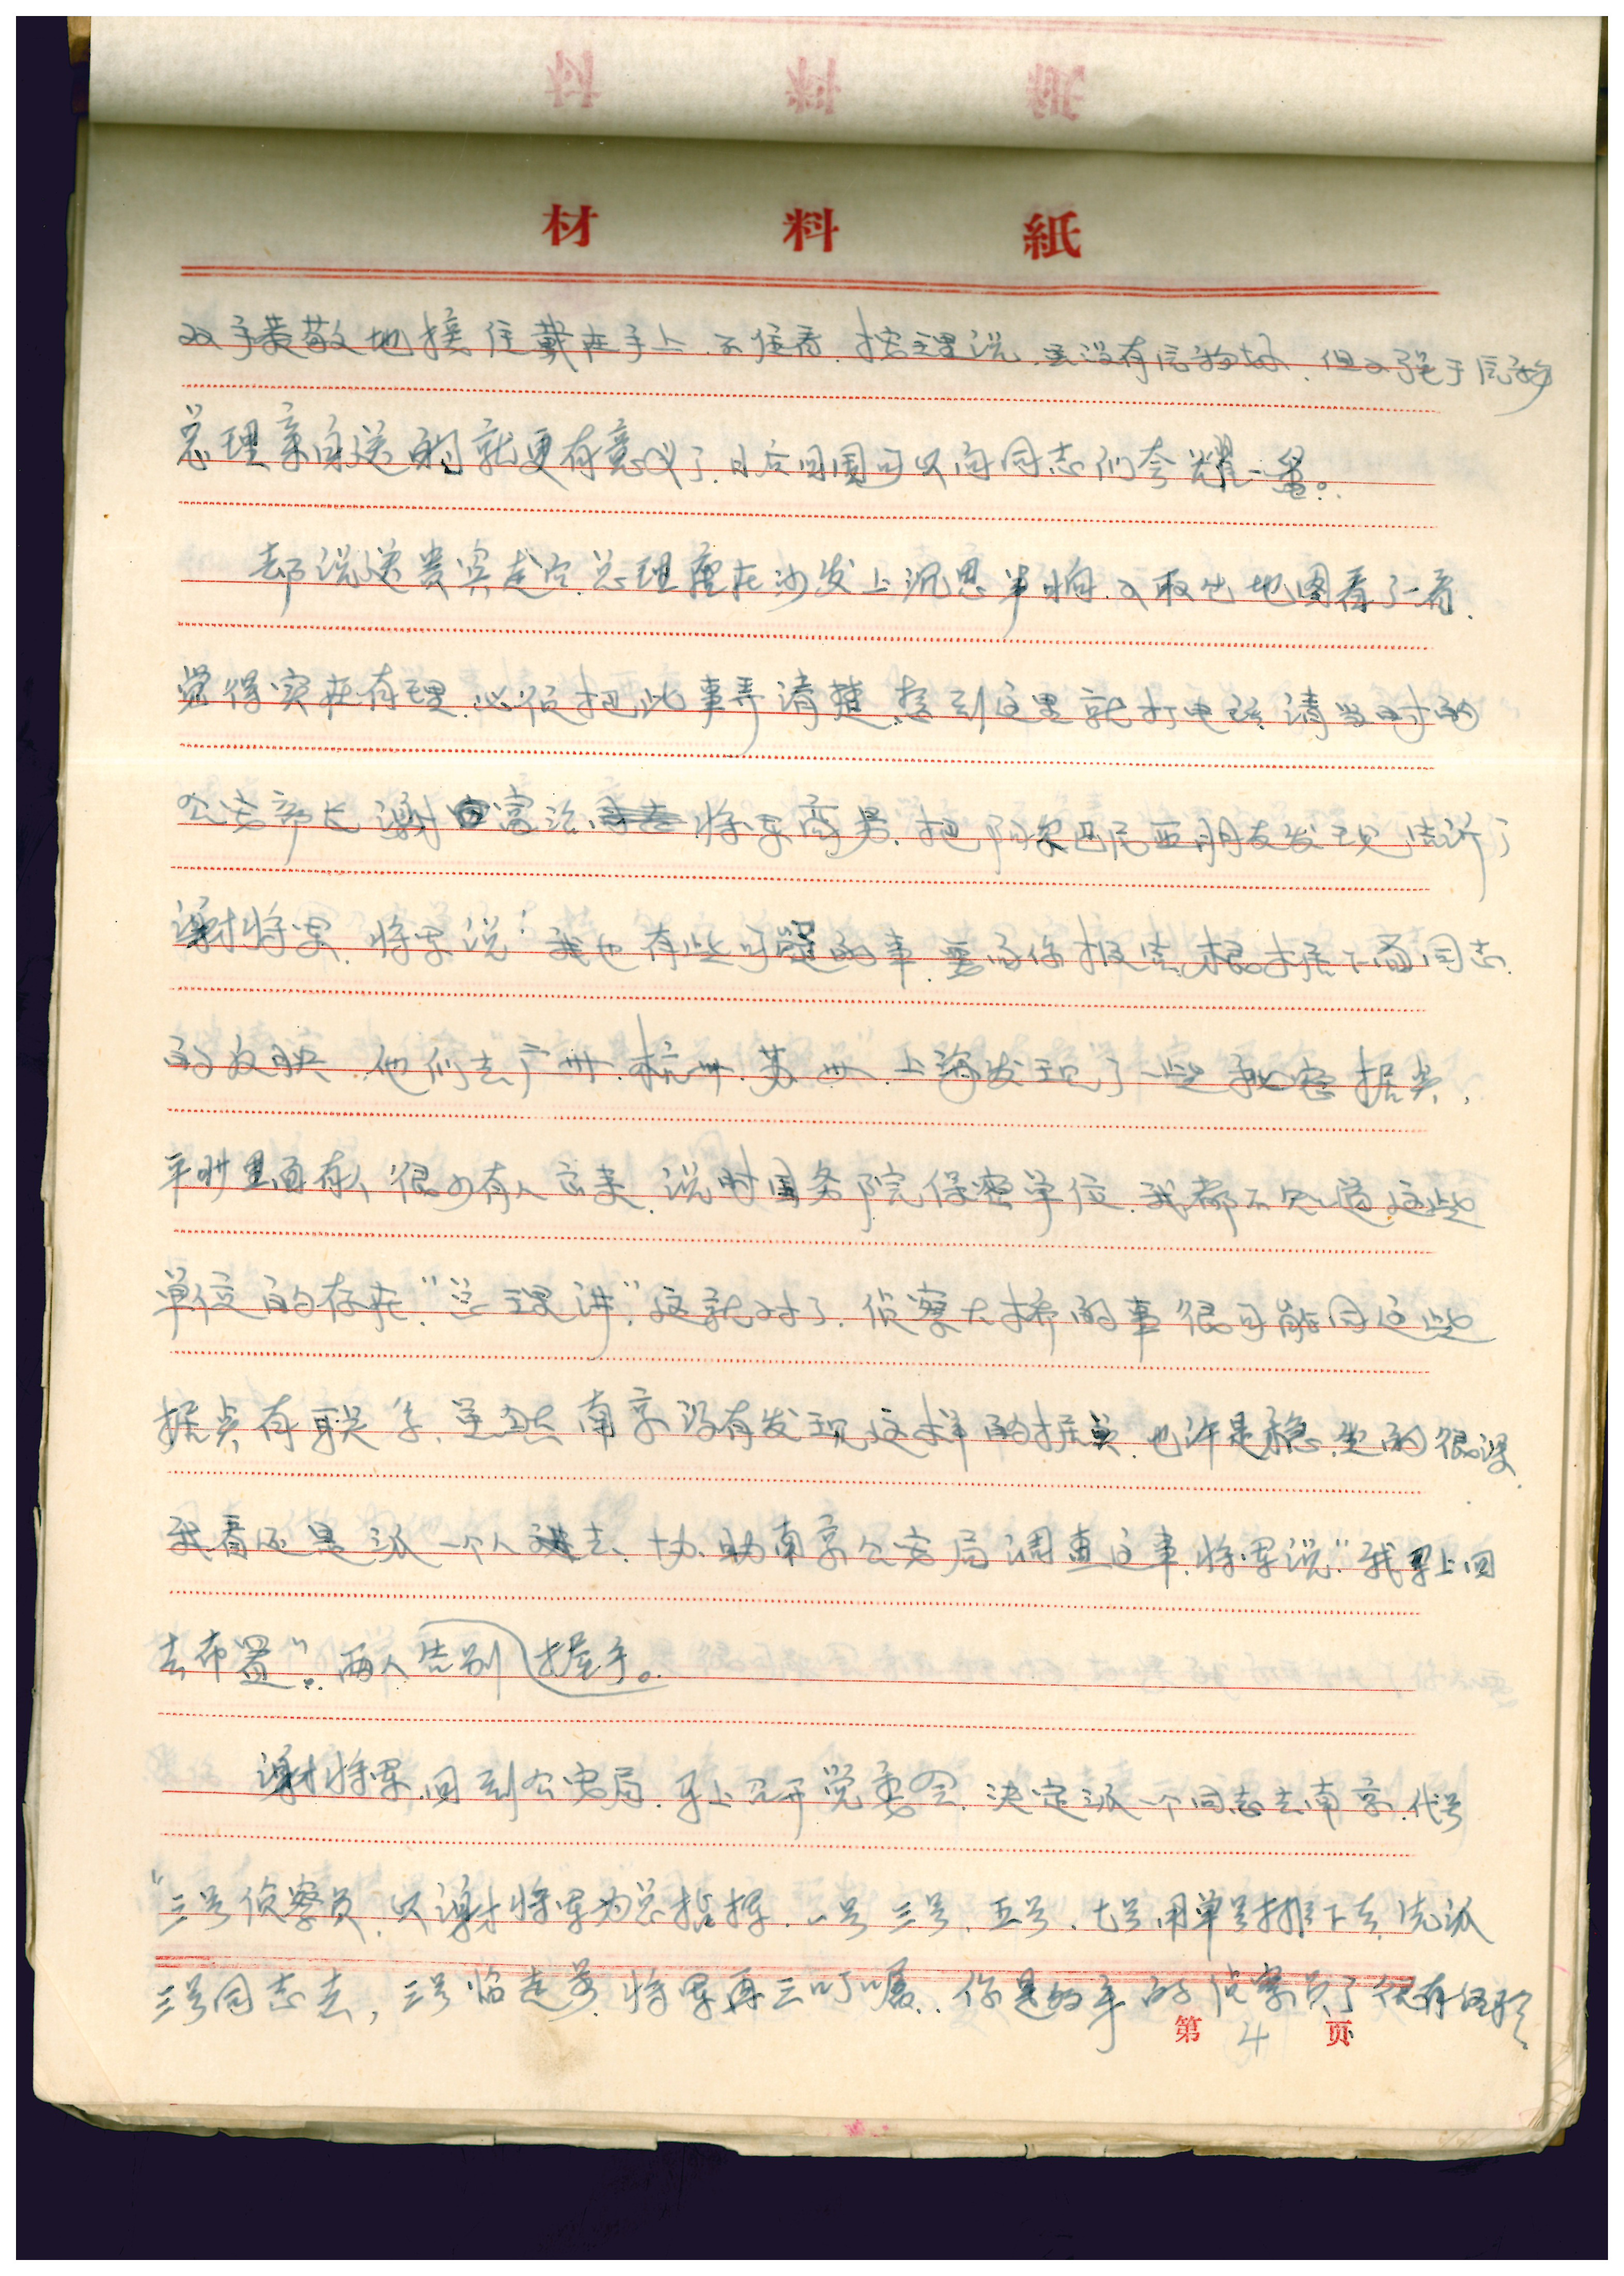 材料紙
双手恭敬地接住戴在手上.不住看.按理说.虽没有原物好.但又强于原物
总理亲自送的就更有意义了.日后回国可以向同志们夸耀一番。
却说送贵宾走后.总理坐在沙发上沉思半晌.又取出地图看了一看.
觉得实在有理.必须把此事弄清楚.想到这里就打电话请当时的
公安部长谢富治将军商量.把阿尔巴尼亚朋友发现告诉了
谢将军.将军说:我也有些可疑的事.要向你报告.根据下面同志
的反映.他们去广州.杭州.苏州.上海发现了一些秘密据点,
平时里面有人很少有人去来.说时国务院保密单位.我都不知道这些
单位的存在."总理讲"这就对了.侦察大桥的事很可能同这些
据点有联系.虽然南京没有发现这样的据点.也许是稳坐的很深.
我看还是派一个人进去.协助南京公安局调查这事.将军说"我马上回
去布置"。两人告别握手。
谢将军回到公安局.马上召开党委会.决定派一个同志去南京.代号
"三号侦察员.以谢将军为总指挥.一号三号.五号.七号用单号排下去.先派
三号同志去,三号临走前.将军再三叮嘱..你是多年的侦察员了很有经验
第4页